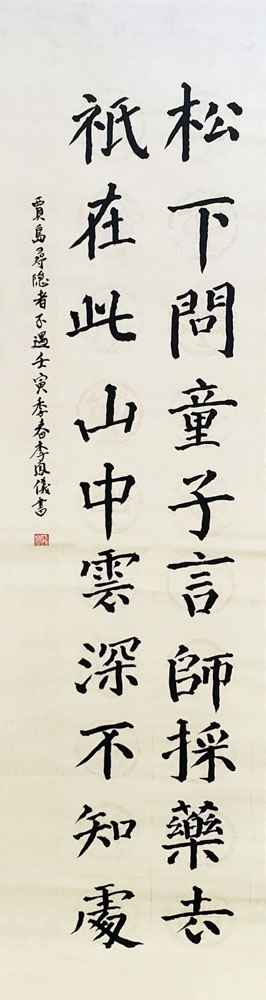 松下問童子言師採藥去
祇在此山中雲深不知處
賈島尋隐者不遇壬寅季春李鳳儀書